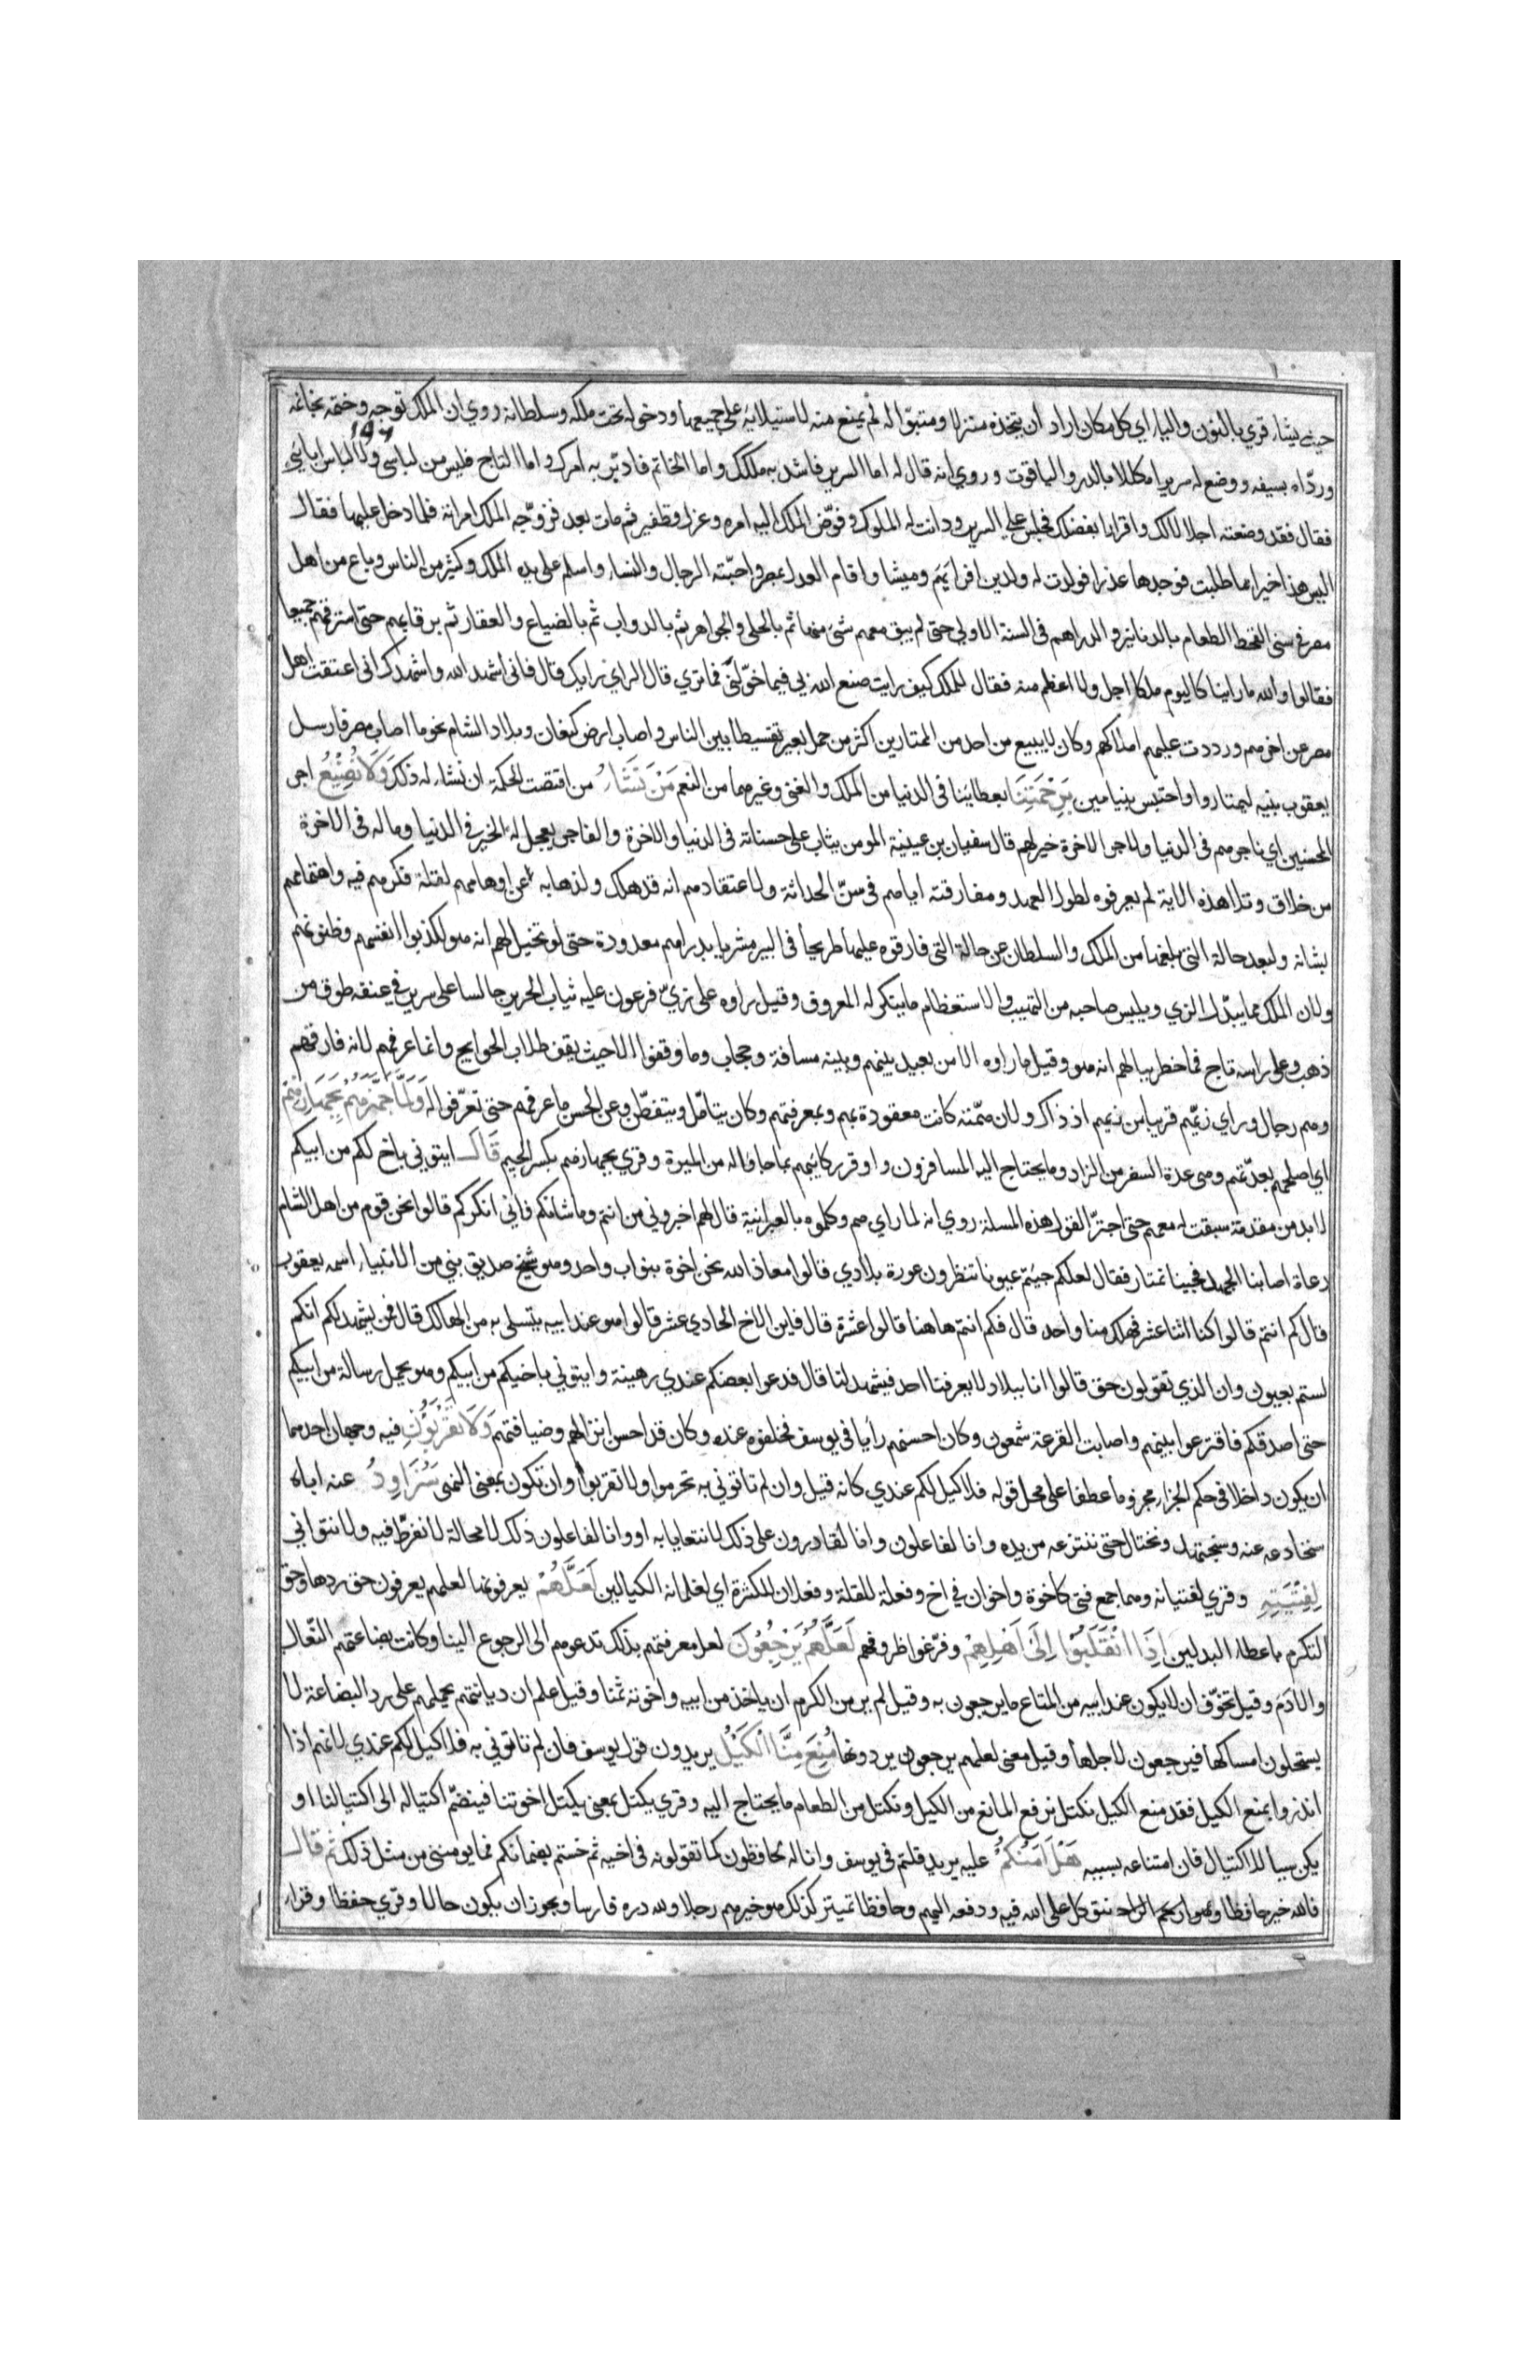 حيث يشاء قري بالنون والياء اي كل مكان اراد ان يتخذه منزلا ومتبوّا له لم يمنع منه لاستيلائه على جميعها ودخوله تحت ملكه وسلطانه روي ان الملك توجه وختمه بخاتمه
وردّاه بسيفه ووضع له سريرا مكللا بالدر والياقوت وروي انه قال له اما السرير فاشد به ملكك واما الخاتم فادبّر به امرك واما التاج فليس من لباسي ولا لباس ابائي
فقال فقد وضعته اجلالا لك واقرارا بفضلك فجلس على السرير ودانت له الملوك وفوّض الملك اليه امره وعزل قطفير ثم مات بعد فزوّجه الملك امراته فلما دخل عليها فقال
اليس هذا خيرا مما طلبت فوجدها عذرا فولدت له ولدين افرايم وميشا واقام العدل بمصر واحبّته الرجال والنساء واسلم على يده الملك وكثير من الناس وباع من اهل
مصر في سني القحط الطعام بالدنانير والدراهم في السنة الاولي حتى لم يبق معهم شئ منها ثم بالحلى والجواهر ثم بالدواب ثم بالضياع والعقار ثم برقابهم حتى استرقهم جميعا
فقالوا والله ما راينا كاليوم ملكا اجل ولا اعظم منه فقال للملك كيف رايت صنع الله بي فيما خوّلني فما تري قال الراي رايك قال فاني اشهد الله واشهدك اني اعتقت اهل
مصر عن اخرهم ورددت عليهم املاكهم وكان لا يبيع من احد من الممتارين اكثر من حمل بعير تقسيطا بين الناس واصاب ارض كنعان وبلاد الشام نحو ما اصاب مصر فارسل
يعقوب بنيه ليمتاروا واحتبس بنيامين بِرَحْمَتِنَا بعطائنا في الدنيا من الملك والغنى وغيرهما من النعم مَنْ نَشَاءُ من اقتضت الحكمة ان نشاء له ذلك وَلَا نُضِيْعُ اجر
المحسنين اي ناجرهم في الدنيا ولاجر الاخرة خير لهم قال سفيان بن عيينة المومن يثاب على حسناته في الدنيا والاخرة والفاجر يعجل له الخير في الدنيا وما له في الاخرة
من خلاق وتلا هذه الاية لم يعرفوه لطول العهد ومفارقته اياهم في سنّ الحداثة ولاعتقادهم انه قد هلك ولذهابه عن اوهامهم لقلة فكرهم فيه واهتمامهم
بشانه ولبعد حالة التي بلغها من الملك والسلطان عن حالة التي فارقوه عليها طريحا في البير مشريا بدراهم معدودة حتى لو تخيل لهم انه هو لكذبوا انفسهم وظنونهم
ولان الملك مما يبدّل الزي ويلبس صاحبه من التهيب والاستعظام ما ينكر له المعروف وقيل راوه على زيّ فرعون عليه ثياب الحرير جالسا على سرير في عنقه طوق من
ذهب وعلى راسه تاج فما خطر ببالهم انه هو وقيل ما راوه الا من بعيد بينهم وبينه مسافة وحجاب وما وقفوا الا حيث يقف طلاب الحوايج وانما عرفهم لانه فارقهم
وهم رجال وراي زيّهم قريبا من زيهم اذ ذاك ولان همّته كانت معقودة بهم وبمعرفتهم وكان يتامّل ويتفطّن وعن الحسن ما عرفهم حتى تعرّفوا له وَلَمَّا جَهَّزَهُمْ بِجَهَازِهِمْ
اي اصلحهم بعدّتهم وهي عدة السفر من الزاد وما يحتاج اليه المسافرون واوقر ركائبهم بما جاؤا له من الميرة وقري بجهازهم بكسر الجيم قَالَ ايتوني باخ لكم من ابيكم
لا بد من مقدمة سبقت له معهم حتى اجترّ القول هذه المسلة روي انه لما راي هم وكلموه بالعبرانية قال لهم اخبروني من انتم وما شانكم فاني انكركم قالوا نحن قوم من اهل الشام
رعاة اصابنا الجهد فجينا نمتار فقال لعلكم جيتم عيونا تنظرون عورة بلادي قالوا معاذ الله نحن اخوة بنو اب واحد وهو شيخ صديق نبي من الانبياء اسمه يعقوب
قال كم انتم قالوا كنا اثنا عشر فهلك منا واحد قال فكم انتم هاهنا قالوا عشرة قال فاين الاخ الحادي عشر قالوا هو عند ابيه يتسلى به من الهالك قال فمن يشهد لكم انكم
لستم بعيون وان الذي تقولون حق قالوا انا ببلاد لا يعرفنا احد فيشهد لنا قال فدعوا بعضكم عندي رهينة وايتوني باخيكم من ابيكم وهو يحمل رسالة من ابيكم
حتى اصدقكم فاقترعوا بينهم واصابت القرعة شمعون وكان احسنهم رأيا في يوسف فخلفوه عنده وكان قد احسن انزالهم وضيافتهم وَلَا تَقْرَبُوْنِ فيه وجهان احدهما
ان يكون داخلا في حكم الجزاء مجزوما عطفا على محل قوله فلا كيل لكم عندي كانه قيل وان لم تاتوني به تحرموا ولا تقربوا وان تكون بمعنى النهى سَنُرَاوِدُ عنه اباه
سنخادعه عنه وسنجتهد ونحتال حتى ننتزعه من يده وانا لفاعلون وانا لقادرون على ذلك لا نتعايا به او وانا لفاعلون ذلك لا محالة لا نفرّط فيه ولا نتواني
لِفِتْيَتِهِ وقري لفتيانه وهما جمع فتى كاخوة واخوان في اخ وفعلة للقلة وفعلان للكثرة اي لغلمانه الكيالين لَعَلَّهُمْ يعرفونها لعلهم يعرفون حق ردها وحق
التكرم باعطاء البدلين اِذَا انْقَلَبُوْا اِلٰى اَهْلِهِمْ وفرّغوا ظروفهم لَعَلَّهُمْ يَرْجِعُوْنَ لعل معرفتهم بذلك تدعوهم الى الرجوع الينا وكانت بضاعتهم النعال
والادم وقيل تخوّف ان لا يكون عند ابيه من المتاع ما يرجعون به وقيل لم ير من الكرم ان ياخذ من ابيه واخوته ثمنا وقيل علم ان ديانتهم تحملهم على رد البضاعة لا
يستحلون امساكها فيرجعون لاجلها وقيل معنى لعلهم يرجعون يردونها مُنِعَ مِنَّا الْكَيْلُ يريدون قول يوسف فان لم تاتوني به فلا كيل لكم عندي لانهم اذا
انذروا بمنع الكيل فقد منع الكيل نكتل نرفع المانع من الكيل ونكتل من الطعام ما يحتاج اليه وقري يكتل بمعنى يكتل اخوتنا فينضمّ اكتياله الى اكتيالنا او
يكن سببا للاكتيال فان امتناعه بسببه هَلْ اٰمَنُكُمْ عليه يريد قلتم في يوسف وانا له لحافظون كما تقولونه في اخيه ثم خنتم بضمانكم فما يومنني من مثل ذلك ثم قال
فالله خير حافظا وهو ارحم الراحمين فتوكل على الله فيه ودفعه اليهم وحافظا تمييز كذلك هو خيرهم رجلا ولله دره فارسا ويجوز ان يكون حالا وقري حفظا وقراء